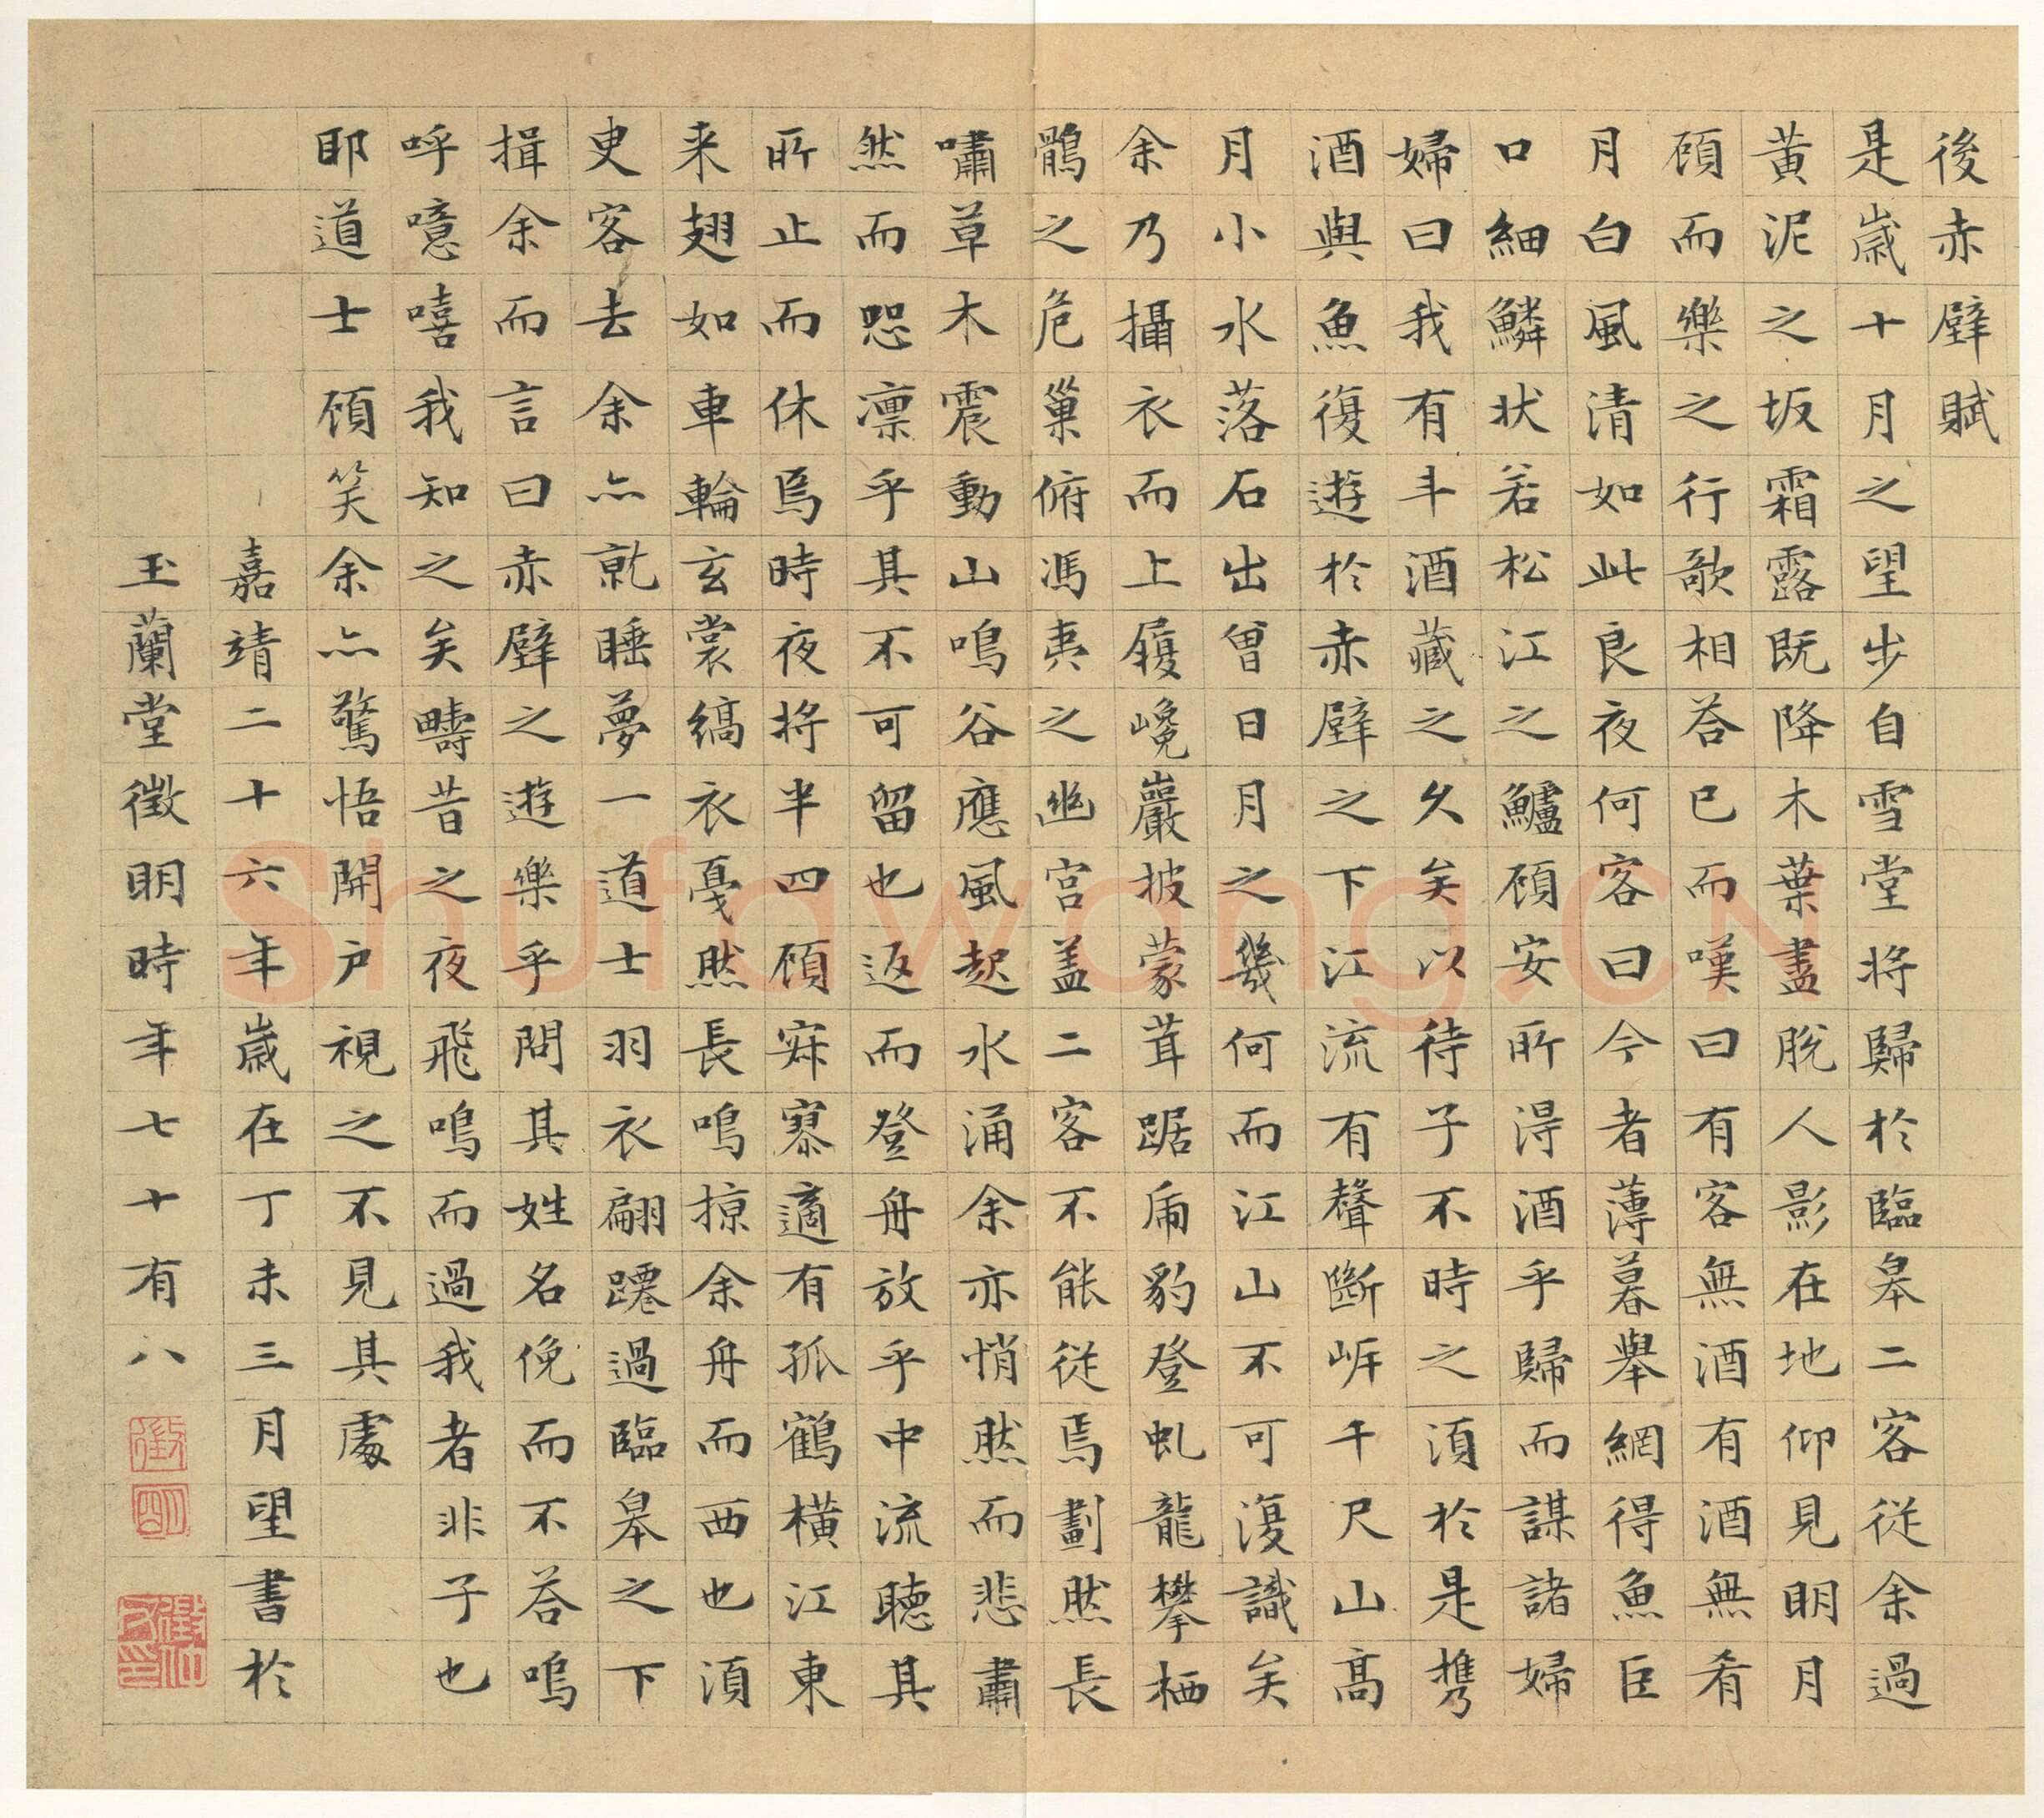 後赤壁賦
是歲十月之望步自雪堂將歸於臨皋二客從余過
黃泥之坂霜露既降木葉盡脫人影在地仰見明月
顧而樂之行歌相荅已而嘆曰有客無酒有酒無肴
月白風清如此良夜何客曰今者薄暮舉網得魚巨
口細鱗狀若松江之鱸顧安所得酒乎歸而謀諸婦
婦曰我有斗酒藏之久矣以待子不時之須於是攜
酒與魚復遊於赤壁之下江流有聲斷岸千尺山高
月小水落石出曾日月之幾何而江山不可復識矣
余乃攝衣而上履巉巖披蒙茸踞虎豹登虬龍攀栖
鶻之危巢俯馮夷之幽宮盖二客不能從焉劃然長
嘯草木震動山鳴谷應風起水涌余亦悄然而悲肅
然而恐凜乎其不可留也返而登舟放乎中流聽其
所止而休焉時夜將半四顧寂寥適有孤鶴橫江東
来翅如車輪玄裳縞衣戛然長鳴掠余舟而西也須
臾客去余亦就睡夢一道士羽衣翩躚過臨皋之下
揖余而言曰赤壁之遊樂乎問其姓名俛而不荅嗚
呼噫嘻我知之矣疇昔之夜飛鳴而過我者非子也
耶道士顧笑余亦驚悟開戶視之不見其處
嘉靖二十六年歲在丁未三月望書於
玉蘭堂徵明時年七十有八
徵
明
Shufawang.CN